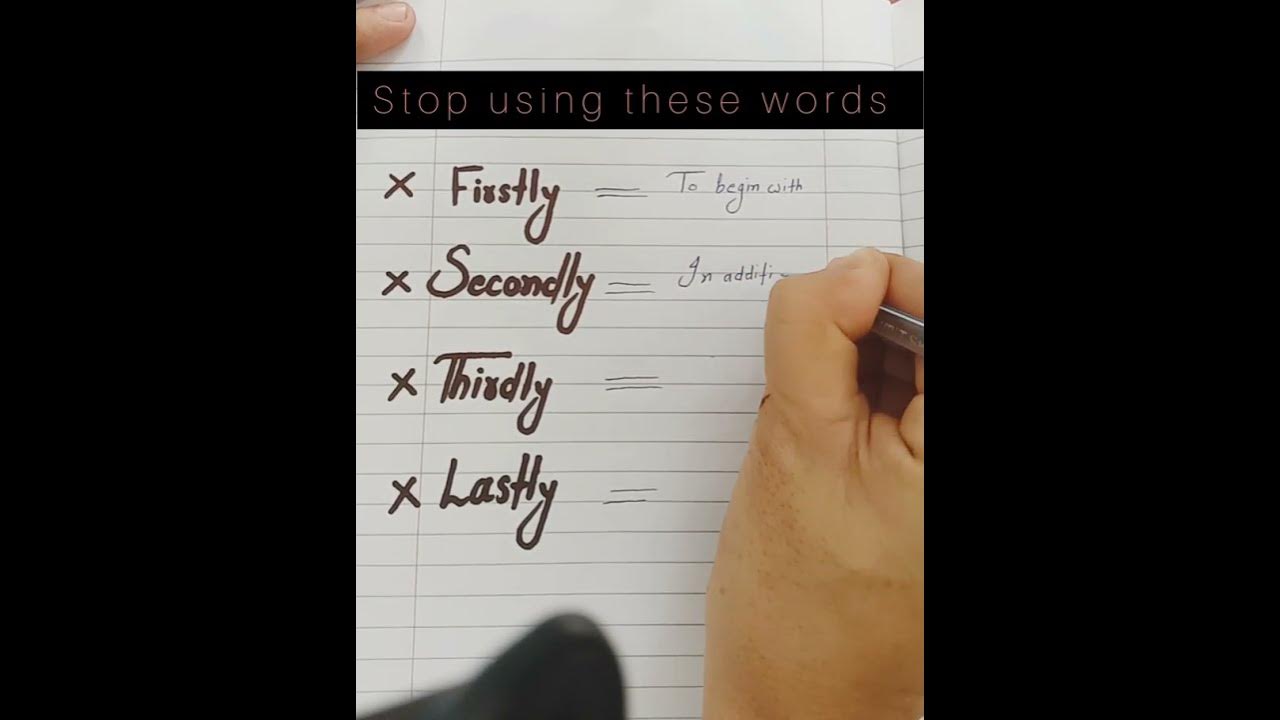 Stop using these words
× Firstly = To begin with
× Secondly = In additi
× Thirdly =
× Lastly =